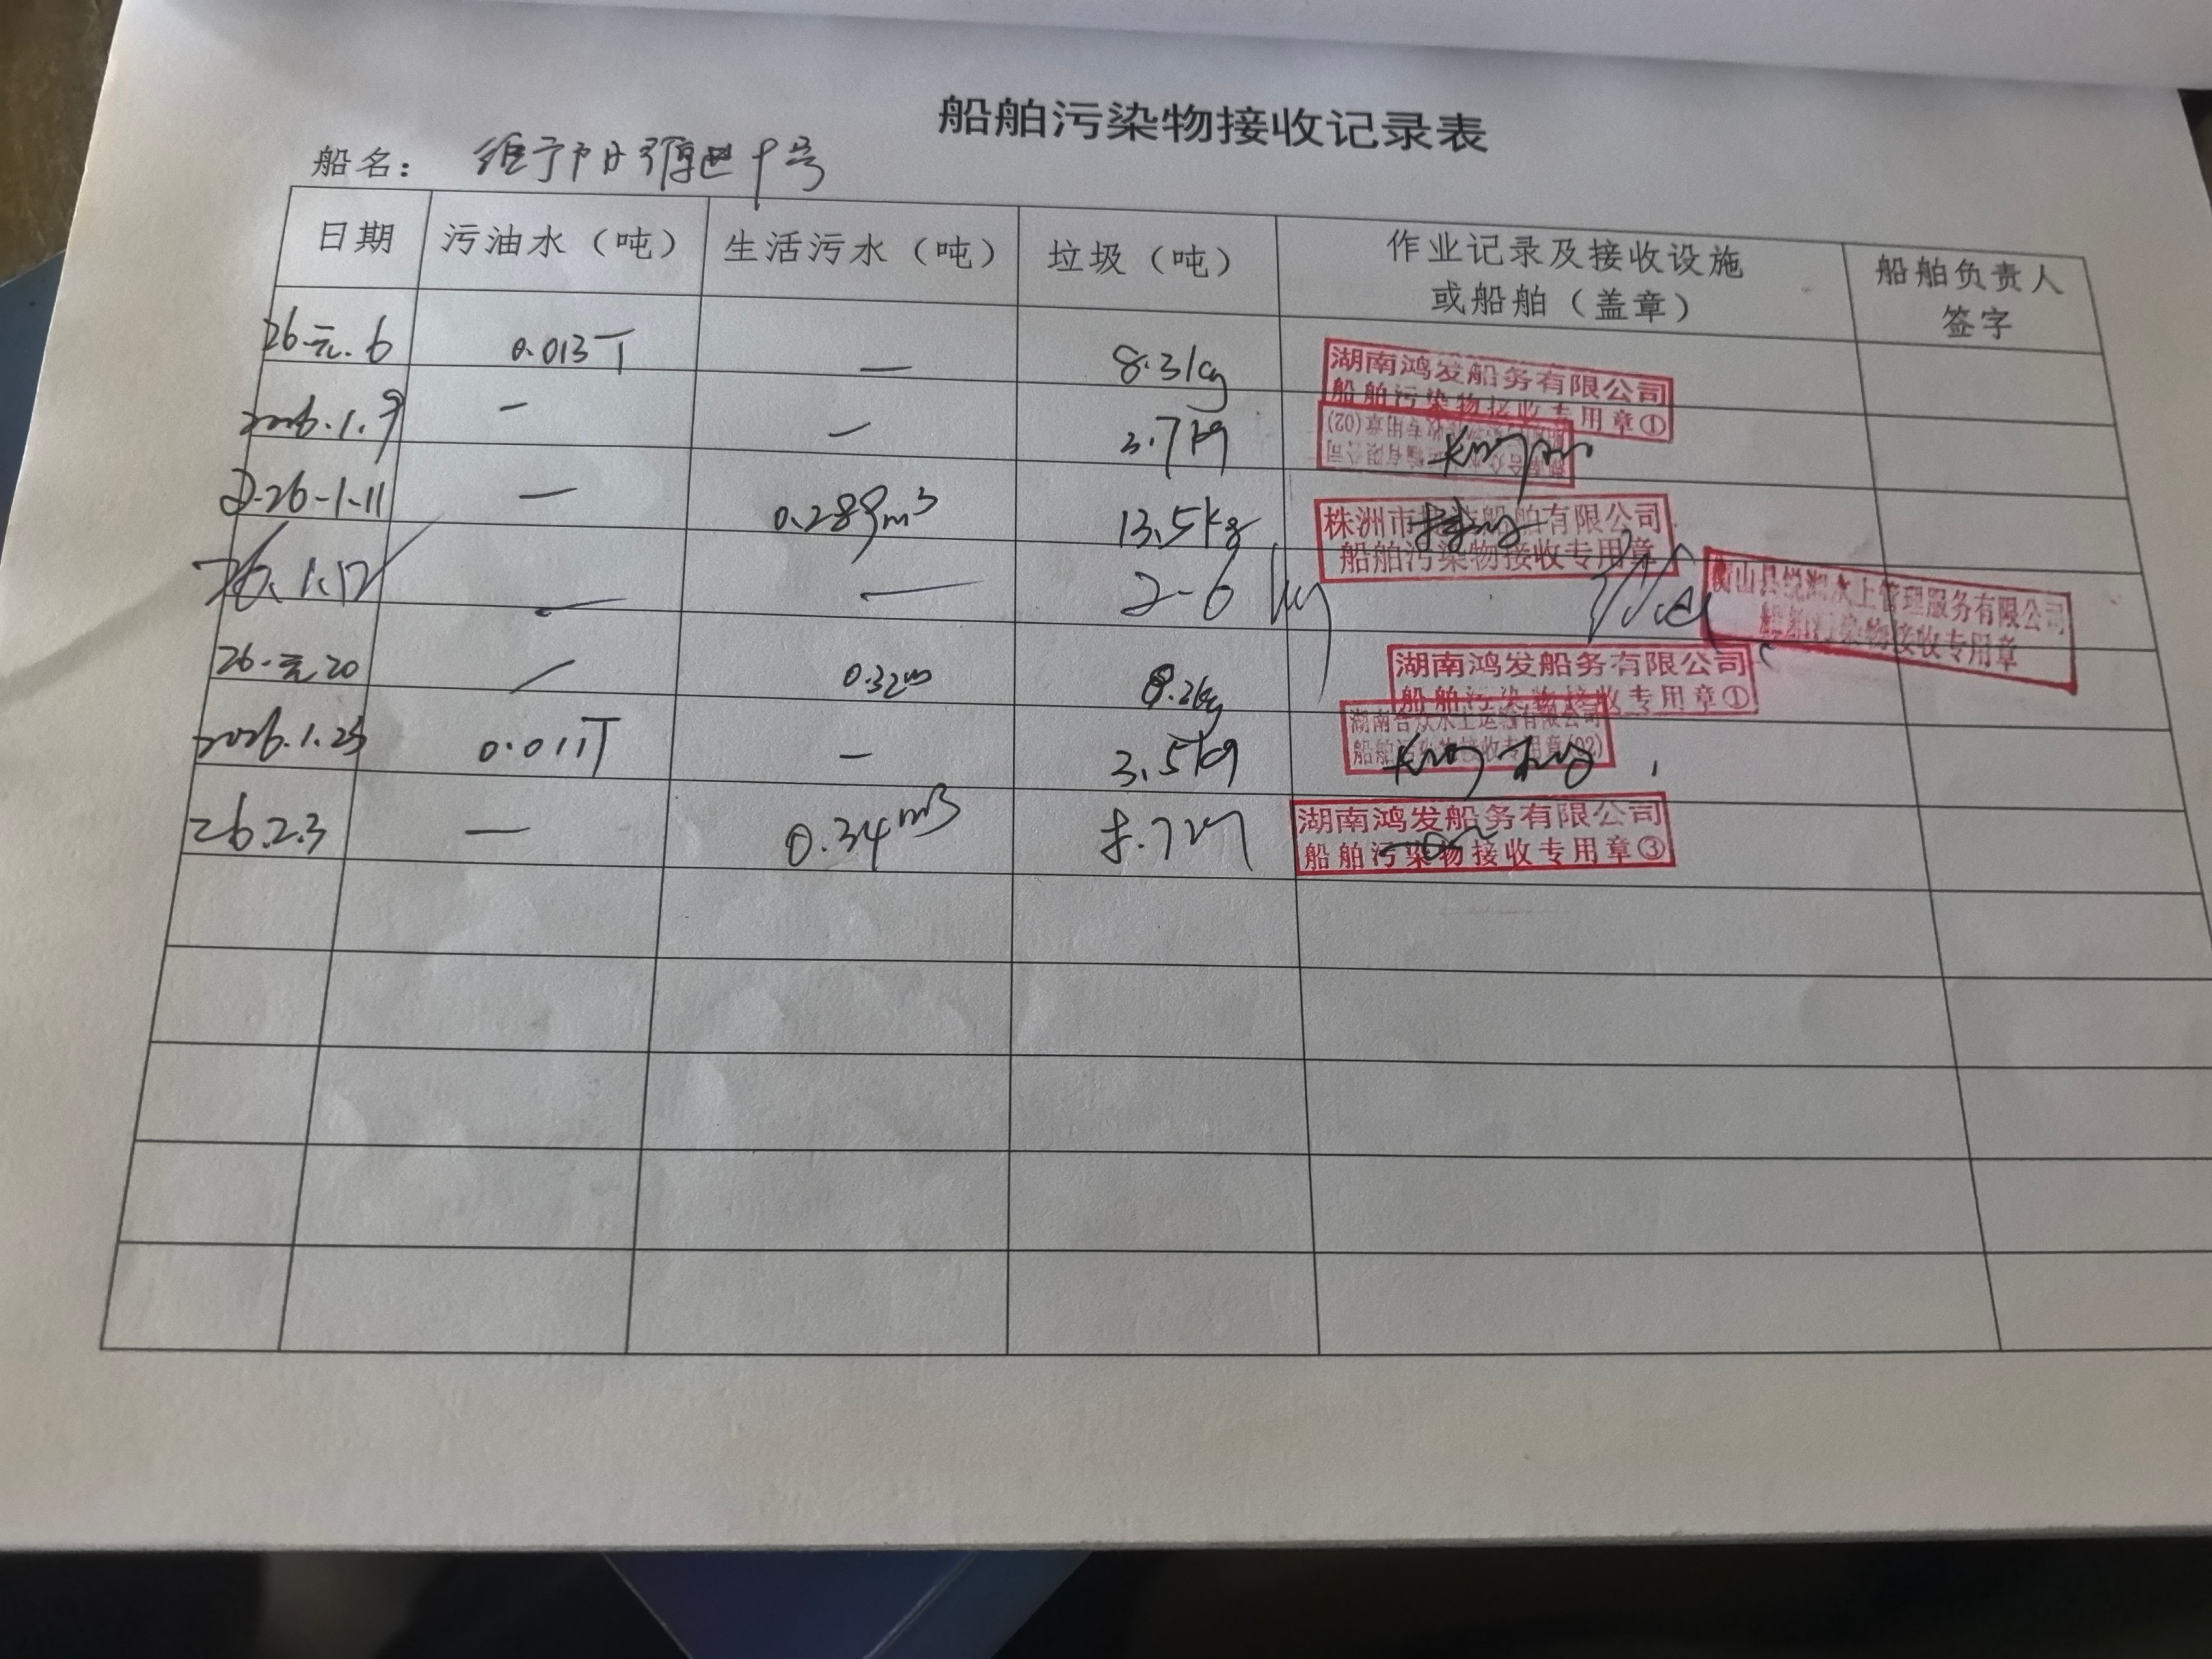 船舶污染物接收记录表
船名：
日期 污油水（吨） 生活污水（吨） 垃圾（吨） 作业记录及接收设施或船舶（盖章） 船舶负责人签字
26.元.6 0.013T — 8.3kg 湖南鸿发船务有限公司 船舶污染物接收专用章①
2026.1.9 — — 3.7kg 船舶污染物接收专用章(02)
2026-1-11 — 0.289m³ 13.5kg 株洲市 船舶有限公司 船舶污染物接收专用章
26.1.12 — — 2-6kg 衡山县 水上管理服务有限公司 船舶污染物接收专用章
26.元.20 / 0.32m 8.2kg 湖南鸿发船务有限公司 船舶污染物接收专用章①
2026.1.25 0.011T — 3.5kg 湖南合众水上运输有限公司 船舶污染物接收专用章(02)
26.2.3 — 0.34m3 8.7kg 湖南鸿发船务有限公司 船舶污染物接收专用章③